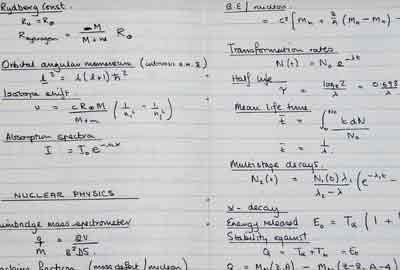 Rydberg Const.
R₀ = R∞
R_hydrogen = M / (M + m) R∞
Orbital angular momentum
l² = l(l+1)ħ²
Isotope shift.
υ = cR∞M / (M+m) (1/n₁² - 1/n₂²)
Absorption spectra
I = I₀e
NUCLEAR PHYSICS
mass spectrometer
q/m = 2V / B²DS
fraction (mass defect / nucleon)
B.E / nucleon
= c² [Mₙ + (Mₕ - Mₙ) -
Transformation rates
N(t) = N₀ e^-λt
Half life
τ = logₑ2 / λ = 0.693
Mean life time
t̄ = ∫ t dN / N₀
t̄ = 1/λ
Multistage decays.
N₂(t) = N₁(0) λ₁ / (λ₂ - λ) (e^-λ₁t -
α - decay
Energy released E₀ = Tα (1 +
Stability against
Q = Tα + Tₕ = E₀
Q = (Z, A) - (Z-2, A-4)